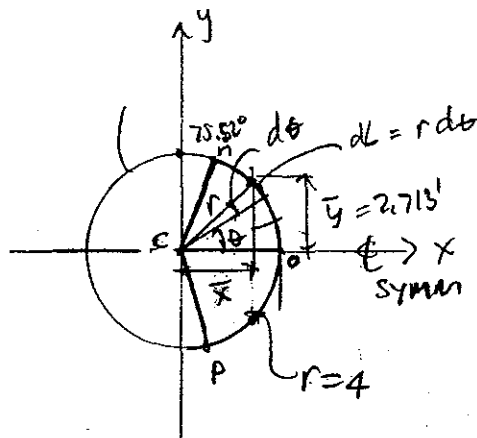 y
75.52°
n
dθ
dL = r dθ
r
θ
ȳ = 2.713'
C
o
x
x̄
℄
symm
p
r=4